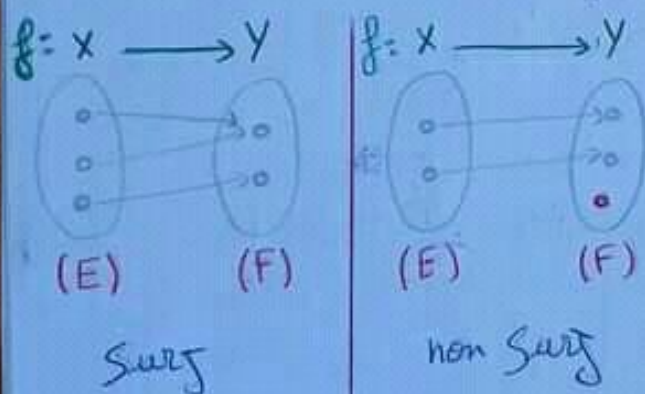 f: X → Y
(E) (F)
Surj
f: X → Y
(E) (F)
non Surj